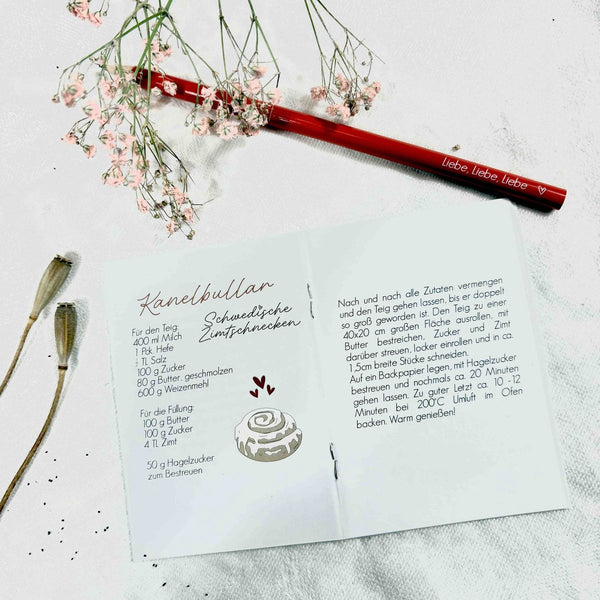 Liebe, Liebe, Liebe
Kanelbullar
Schwedische
Zimtschnecken
Für den Teig:
400 ml Milch
1 Pck. Hefe
½ TL Salz
100 g Zucker
80 g Butter, geschmolzen
600 g Weizenmehl
Für die Füllung:
100 g Butter
100 g Zucker
4 TL Zimt
50 g Hagelzucker
zum Bestreuen
Nach und nach alle Zutaten vermengen
und den Teig gehen lassen, bis er doppelt
so groß geworden ist. Den Teig zu einer
40x20 cm großen Fläche ausrollen, mit
Butter bestreichen, Zucker und Zimt
darüber streuen, locker einrollen und in ca.
1,5cm breite Stücke schneiden.
Auf ein Backpapier legen, mit Hagelzucker
bestreuen und nochmals ca. 20 Minuten
gehen lassen. Zu guter Letzt ca. 10 -12
Minuten bei 200°C Umluft im Ofen
backen. Warm genießen!